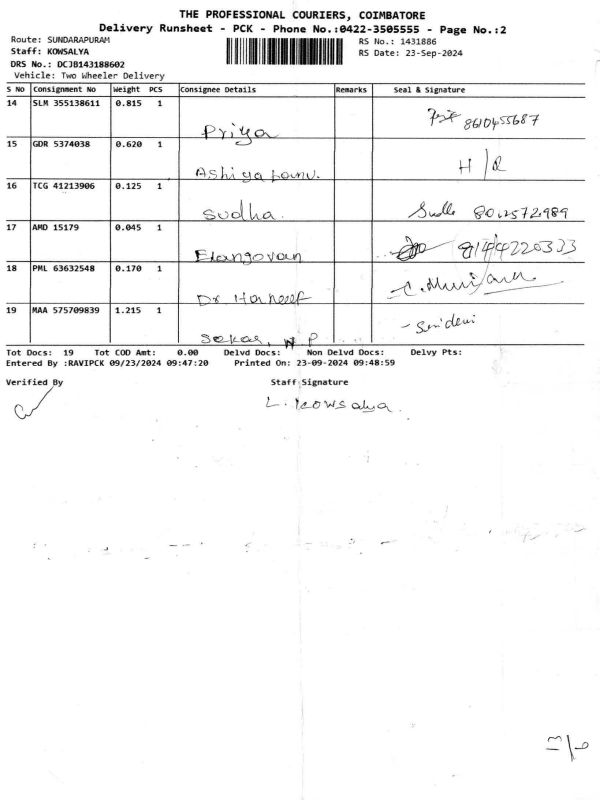 THE PROFESSIONAL COURIERS, COIMBATORE
Delivery Runsheet - PCK - Phone No.:0422-3505555 - Page No.:2
Route: SUNDARAPURAM RS No.: 1431886
Staff: KOWSALYA RS Date: 23-Sep-2024
DRS No.: DCJB143188602
Vehicle: Two Wheeler Delivery
S No Consignment No Weight PCS Consignee Details Remarks Seal & Signature
14 SLM 355138611 0.815 1 Priya 8610455687
15 GDR 5374038 0.620 1 Ashiya banu. H/R
16 TCG 41213906 0.125 1 Sudha.
17 AMD 15179 0.045 1 Elangovan
18 PML 63632548 0.170 1 Dr. Haneef
19 MAA 575709839 1.215 1 Sekar, N P Sridevi
Tot Docs: 19 Tot COD Amt: 0.00 Delvd Docs: Non Delvd Docs: Delvy Pts:
Entered By :RAVIPCK 09/23/2024 09:47:20 Printed On: 23-09-2024 09:48:59
Verified By Staff Signature
L. Kowsalya.